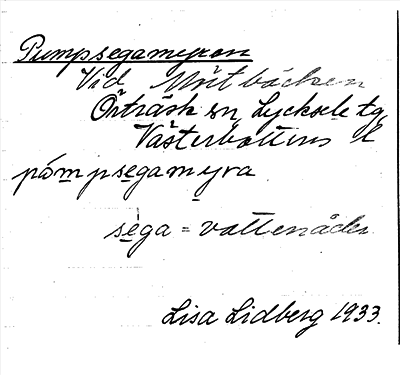 Pumpsegamyran
Vid Mörtbäcken
Örträsk sn, Lycksele tg
Västerbottens l
pómpsegamyra
sega = vattenåder
Lisa Lidberg 1933.